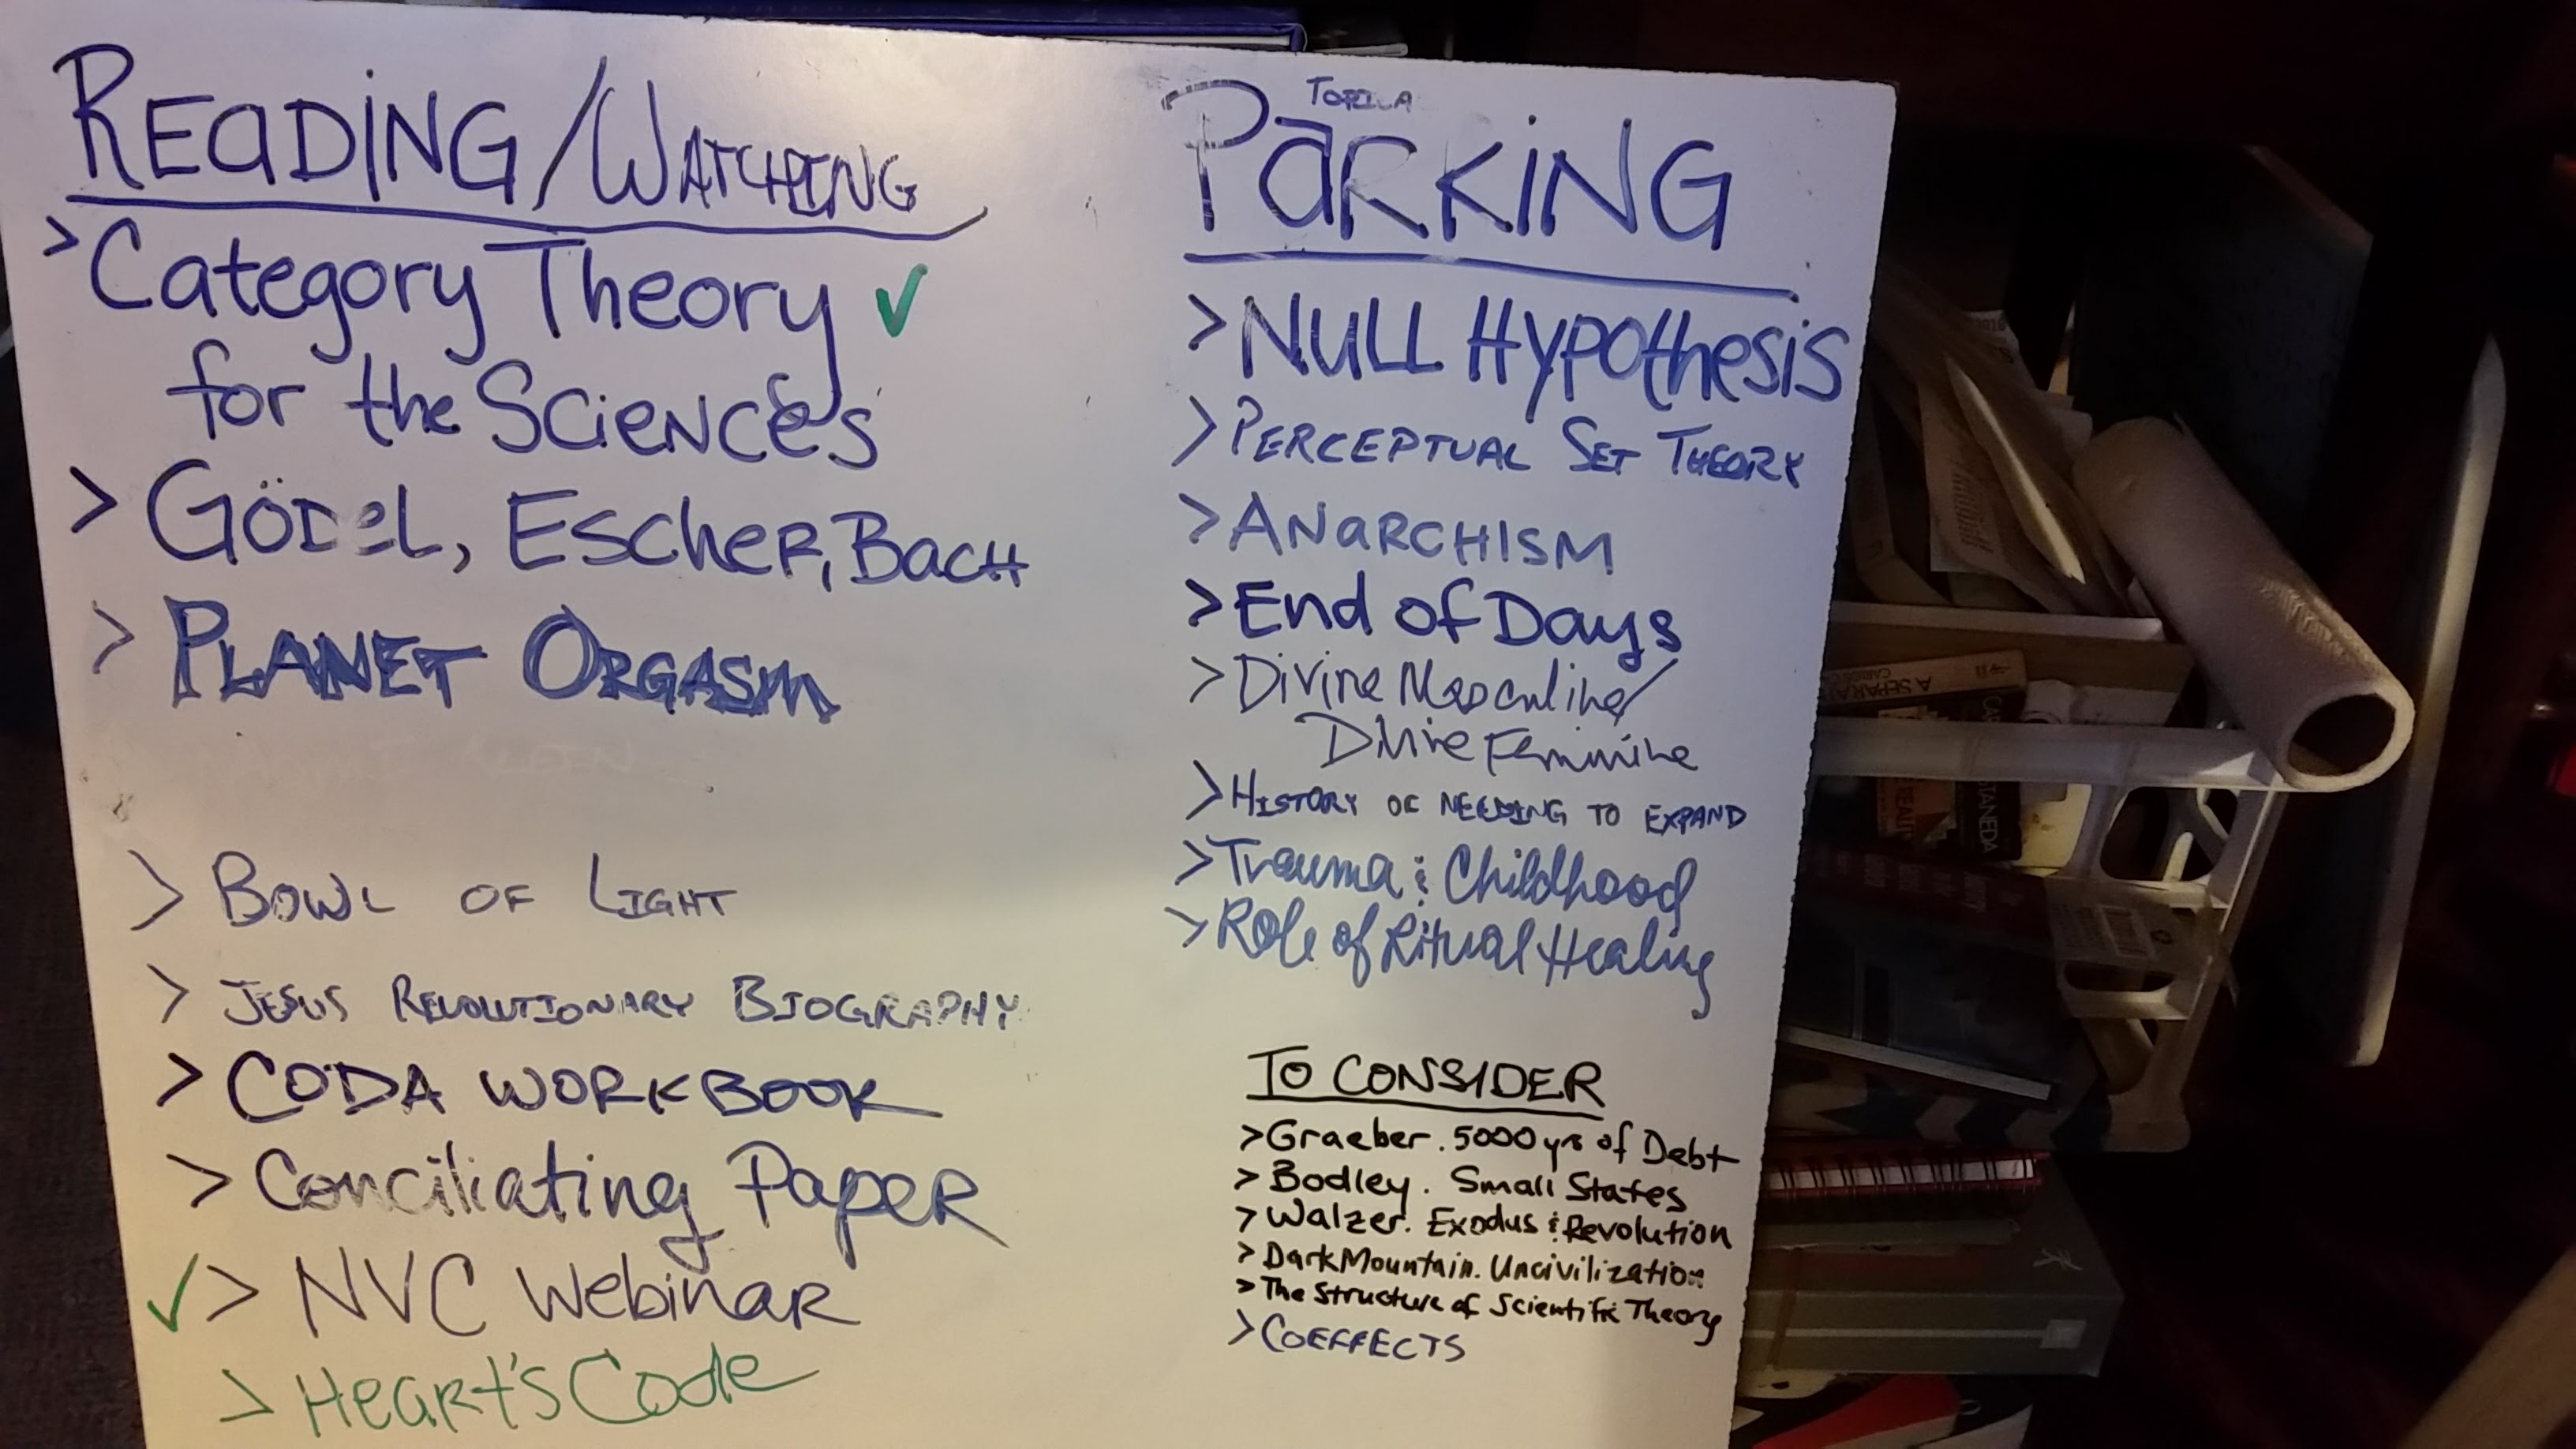 READING/WATCHING
> Category Theory ✓
for the Sciences
> Gödel, Escher, Bach
> PLANET ORGASM
> BOWL OF LIGHT
> JESUS REVOLUTIONARY BIOGRAPHY
> CODA WORKBOOK
> Conciliating Paper
✓ > NVC Webinar
> Heart's Code
PARKING
> NULL Hypothesis
> PERCEPTUAL SET THEORY
> ANARCHISM
> End of Days
> Divine Masculine/
Divine Feminine
> HISTORY OF NEEDING TO EXPAND
> Trauma & Childhood
> Role of Ritual Healing
TO CONSIDER
> Graeber. 5000 yrs of Debt
> Bodley. Small States
> Walzer. Exodus & Revolution
> Dark Mountain. Uncivilization
> The Structure of Scientific Theory
> COEFFECTS
A SEPARA
CASTANEDA
REALI